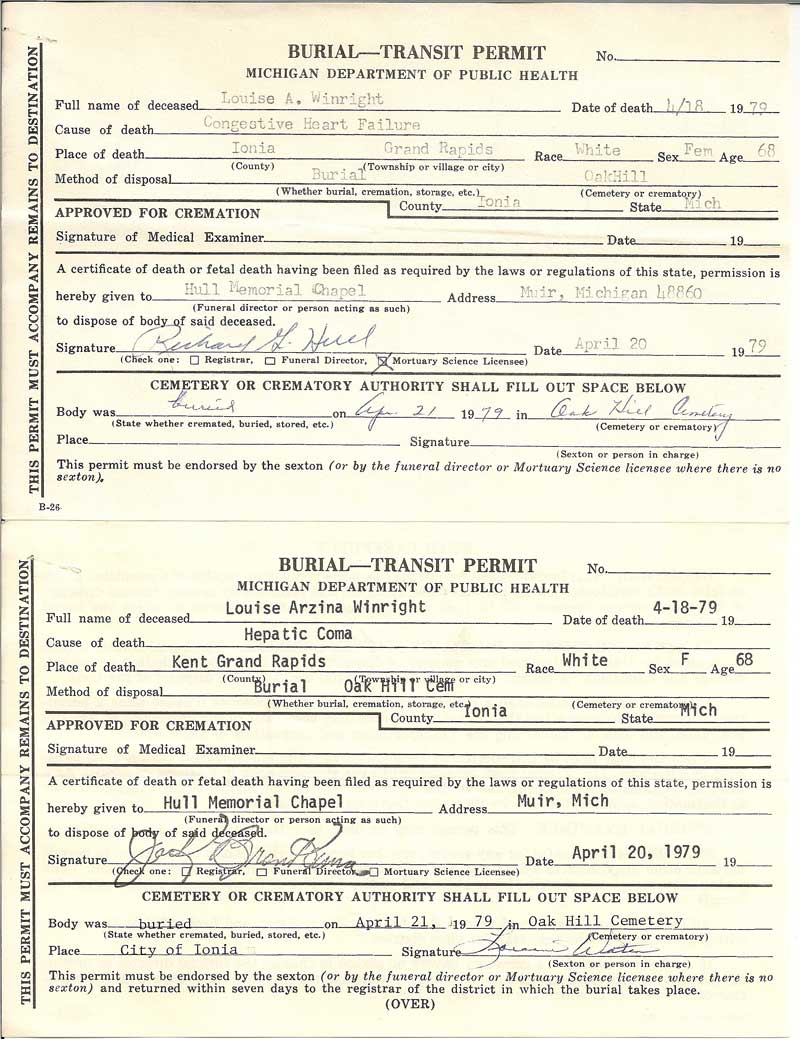 THIS PERMIT MUST ACCOMPANY REMAINS TO DESTINATION
BURIAL—TRANSIT PERMIT No.
MICHIGAN DEPARTMENT OF PUBLIC HEALTH
Full name of deceased Louise A. Winright Date of death 4/18 19 79
Cause of death Congestive Heart Failure
Place of death Ionia Grand Rapids Race White Sex Fem Age 68
(County) (Township or village or city)
Method of disposal Burial OakHill
(Whether burial, cremation, storage, etc.) (Cemetery or crematory)
County Ionia State Mich
APPROVED FOR CREMATION
Signature of Medical Examiner Date 19
A certificate of death or fetal death having been filed as required by the laws or regulations of this state, permission is
hereby given to Hull Memorial Chapel Address Muir, Michigan 48860
(Funeral director or person acting as such)
to dispose of body of said deceased.
Signature Richard L. Hull Date April 20 19 79
(Check one: Registrar, Funeral Director, Mortuary Science Licensee)
CEMETERY OR CREMATORY AUTHORITY SHALL FILL OUT SPACE BELOW
Body was buried on Apr. 21 19 79 in Oak Hill Cemetery
(State whether cremated, buried, stored, etc.) (Cemetery or crematory)
Place Signature
(Sexton or person in charge)
This permit must be endorsed by the sexton (or by the funeral director or Mortuary Science licensee where there is no
sexton).
B-26
THIS PERMIT MUST ACCOMPANY REMAINS TO DESTINATION.
BURIAL—TRANSIT PERMIT No.
MICHIGAN DEPARTMENT OF PUBLIC HEALTH
Full name of deceased Louise Arzina Winright Date of death 4-18-79 19
Cause of death Hepatic Coma
Place of death Kent Grand Rapids Race White Sex F Age 68
(County) (Township or village or city)
Method of disposal Burial Oak Hill Cem
(Whether burial, cremation, storage, etc.) (Cemetery or crematory)
County Ionia State Mich
APPROVED FOR CREMATION
Signature of Medical Examiner Date 19
A certificate of death or fetal death having been filed as required by the laws or regulations of this state, permission is
hereby given to Hull Memorial Chapel Address Muir, Mich
(Funeral director or person acting as such)
to dispose of body of said deceased.
Signature Date April 20, 1979 19
(Check one: Registrar, Funeral Director, Mortuary Science Licensee)
CEMETERY OR CREMATORY AUTHORITY SHALL FILL OUT SPACE BELOW
Body was buried on April 21, 19 79 in Oak Hill Cemetery
(State whether cremated, buried, stored, etc.) (Cemetery or crematory)
Place City of Ionia Signature
(Sexton or person in charge)
This permit must be endorsed by the sexton (or by the funeral director or Mortuary Science licensee where there is no
sexton) and returned within seven days to the registrar of the district in which the burial takes place.
(OVER)